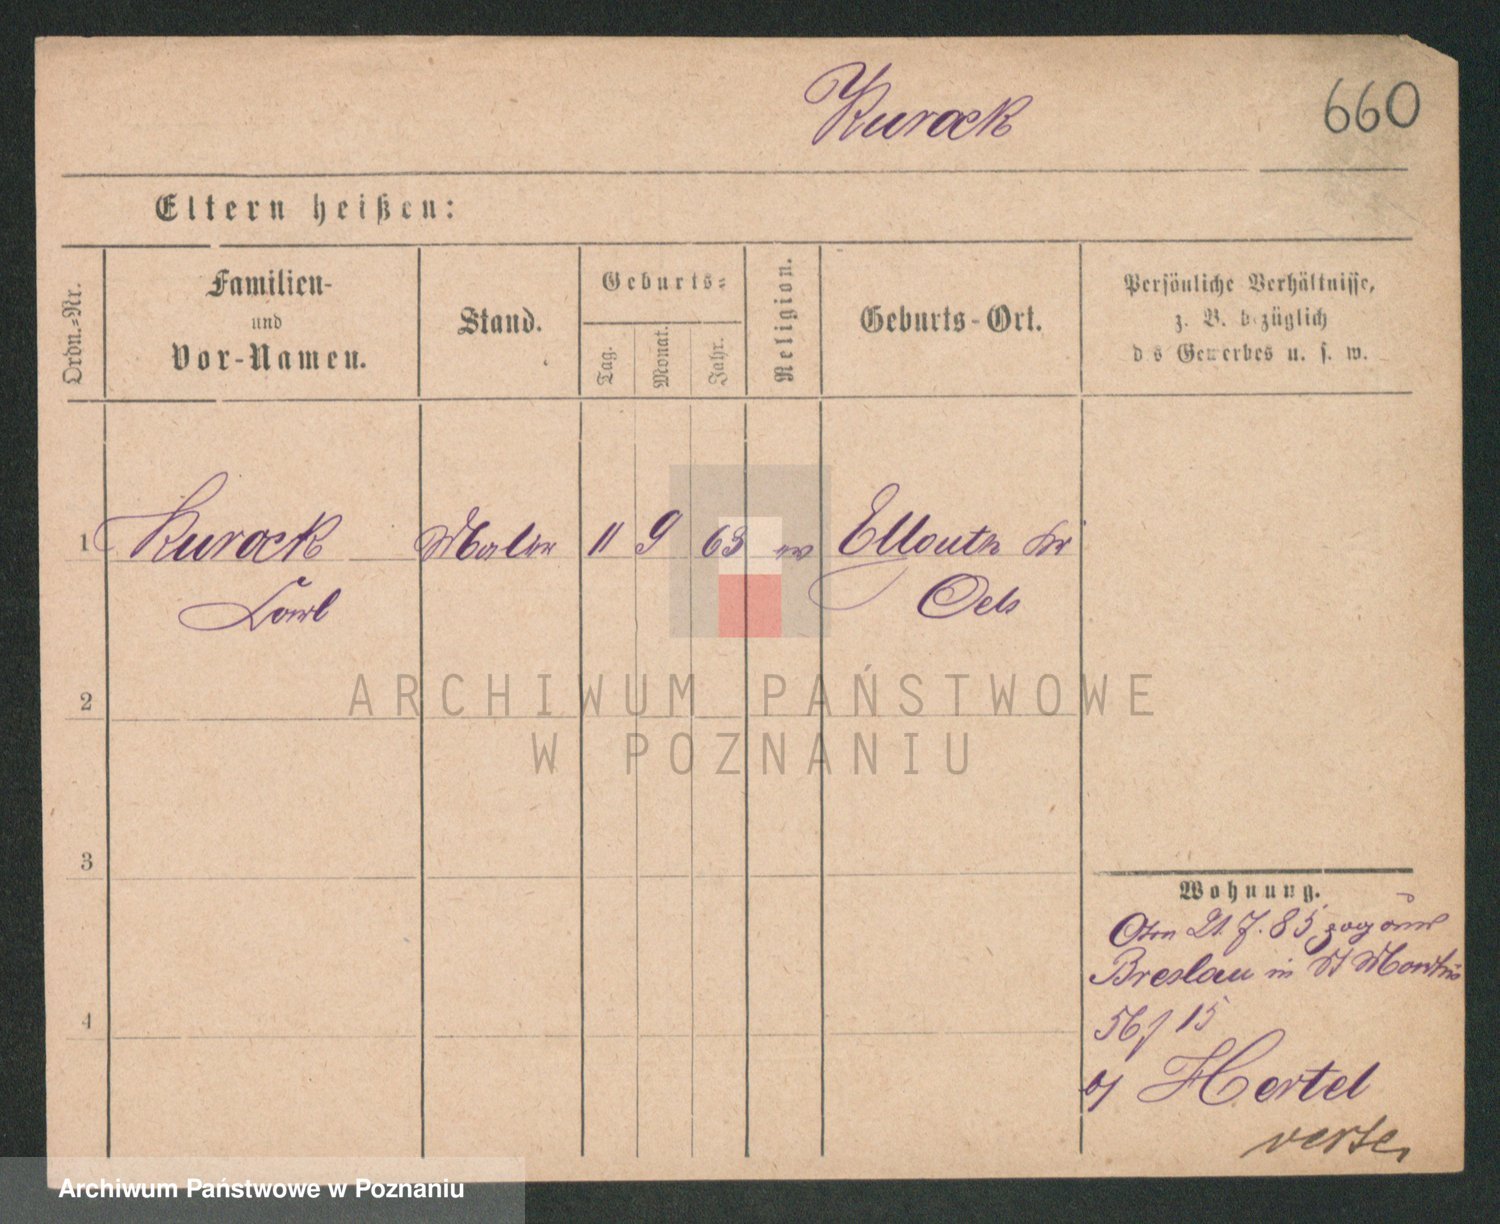 Kurock
660
Eltern heißen:
Ordn.=Nr.
Familien-
und
Vor-Namen.
Stand.
Geburts=
Tag.
Monat.
Jahr.
Religion.
Geburts-Ort.
Persönliche Verhältnisse,
z. B. bezüglich
d s Gewerbes u. s. w.
1 Kurock Maler 11 9 63 ev Ellguth Kr
Carl Oels
2
3
4
Wohnung.
21. 7. 85 zog aus
Breslau in St Martin
56 15
b/ Hertel
verte.
ARCHIWUM PAŃSTWOWE
W POZNANIU
Archiwum Państwowe w Poznaniu